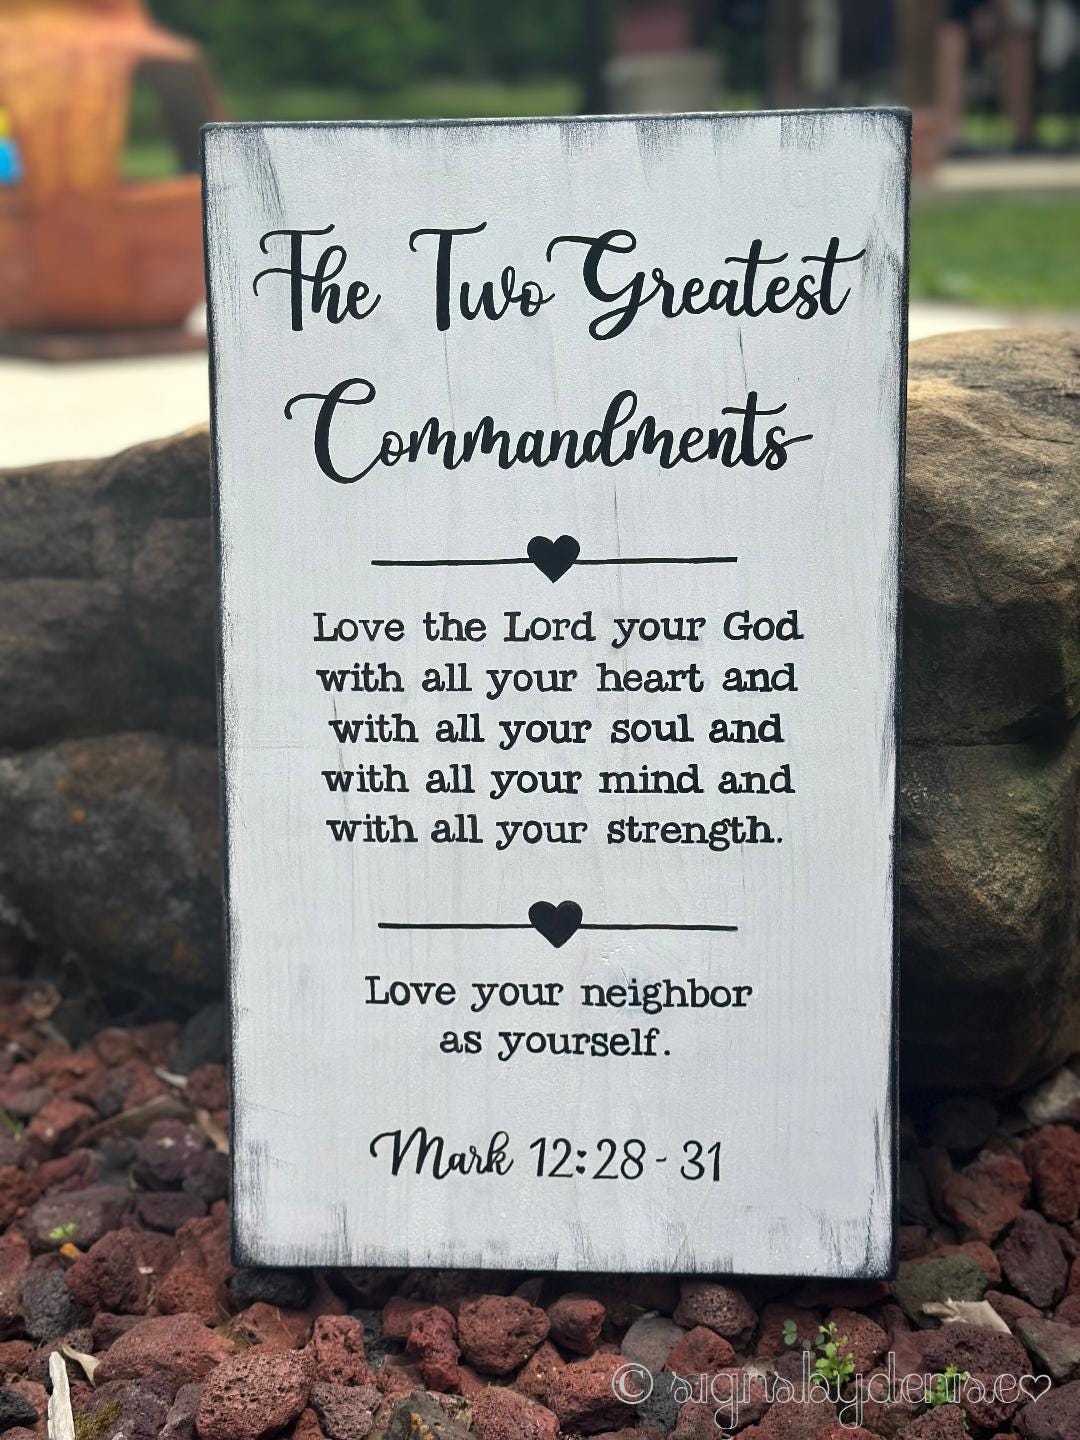 The Two Greatest
Commandments
Love the Lord your God
with all your heart and
with all your soul and
with all your mind and
with all your strength.
Love your neighbor
as yourself.
Mark 12:28-31
© signsbydenise♡